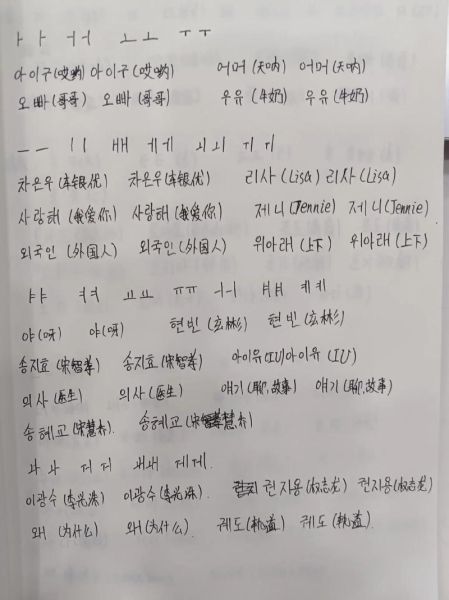 ㅏㅏ ㅓㅓ ㅗㅗ ㅜㅜ
아이구(哎哟) 아이구(哎哟) 어머(天呐) 어머(天呐)
오빠(哥哥) 오빠(哥哥) 우유(牛奶) 우유(牛奶)
ㅡㅡ ㅣㅣ ㅐㅐ ㅔㅔ ㅚㅚ ㅟㅟ
차은우(车银优) 차은우(车银优) 리사(Lisa) 리사(Lisa)
사랑해(我爱你) 사랑해(我爱你) 제니(Jennie) 제니(Jennie)
외국인(外国人) 외국인(外国人) 위아래(上下) 위아래(上下)
ㅑㅑ ㅕㅕ ㅛㅛ ㅠㅠ ㅢㅢ ㅒㅒ ㅖㅖ
야(呀) 야(呀) 현빈(玄彬) 현빈(玄彬)
송지효(宋智孝) 송지효(宋智孝) 아이유(IU)아이유(IU)
의사(医生) 의사(医生) 얘기(聊,故事) 얘기(聊,故事)
송혜교(宋慧乔). 송혜교(宋慧乔)
ㅘㅘ ㅝㅝ ㅙㅙ ㅞㅞ.
이광수(李光洙) 이광수(李光洙). 권지용(权志龙) 권지용(权志龙)
왜(为什么) 왜(为什么). 궤도(轨道) 궤도(轨道).